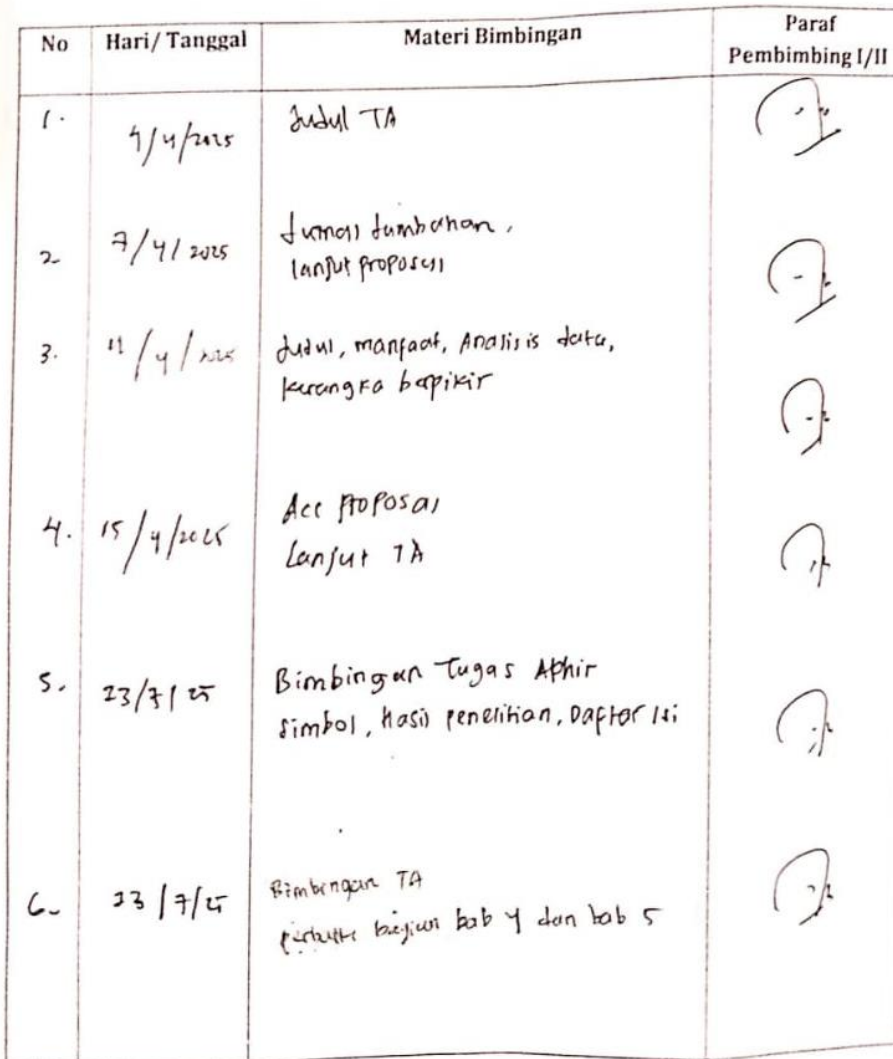 No Hari/ Tanggal Materi Bimbingan Paraf
Pembimbing I/II
1. 4/4/2025 Judul TA
2. 7/4/2025 Jurnal tambahan,
lanjut proposal
3. 11/4/2025 Judul, manfaat, Analisis data,
kerangka berpikir
4. 15/4/2025 Acc Proposal
Lanjut TA
5. 23/7/25 Bimbingan Tugas Akhir
Simbol, hasil penelitian, Daftar Isi
6. 23/7/25 Bimbingan TA
bagian bab 4 dan bab 5